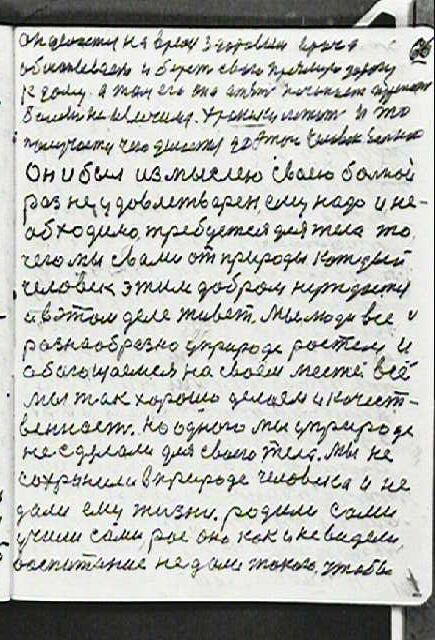 он делается на время здоровым врача
и берет свою прямую дорогу
к дому. а там его она опять начинает
Болезни не влечима. Хроники и то
получается чего делается до этого человек больной
Он и был из мыслею своею болной
раз не удовлетварен, ему надо и не-
обходимо, требуется для тела то
чего мы с вами от природы каждый
человек этим добром нуждается
а в этом деле живет. мы люди все и
разнаобразно у природе ростем и
обагощаемся на своем месте. всё
мы так хорошо делаем и качест-
венность. но одного мы у природе
не сделали для своего тела. мы не
сохранили в природе человека и не
дали ему жизни. родили сами
учили сами, рое оно как и не видели
воспитание не дали такого, чтобы